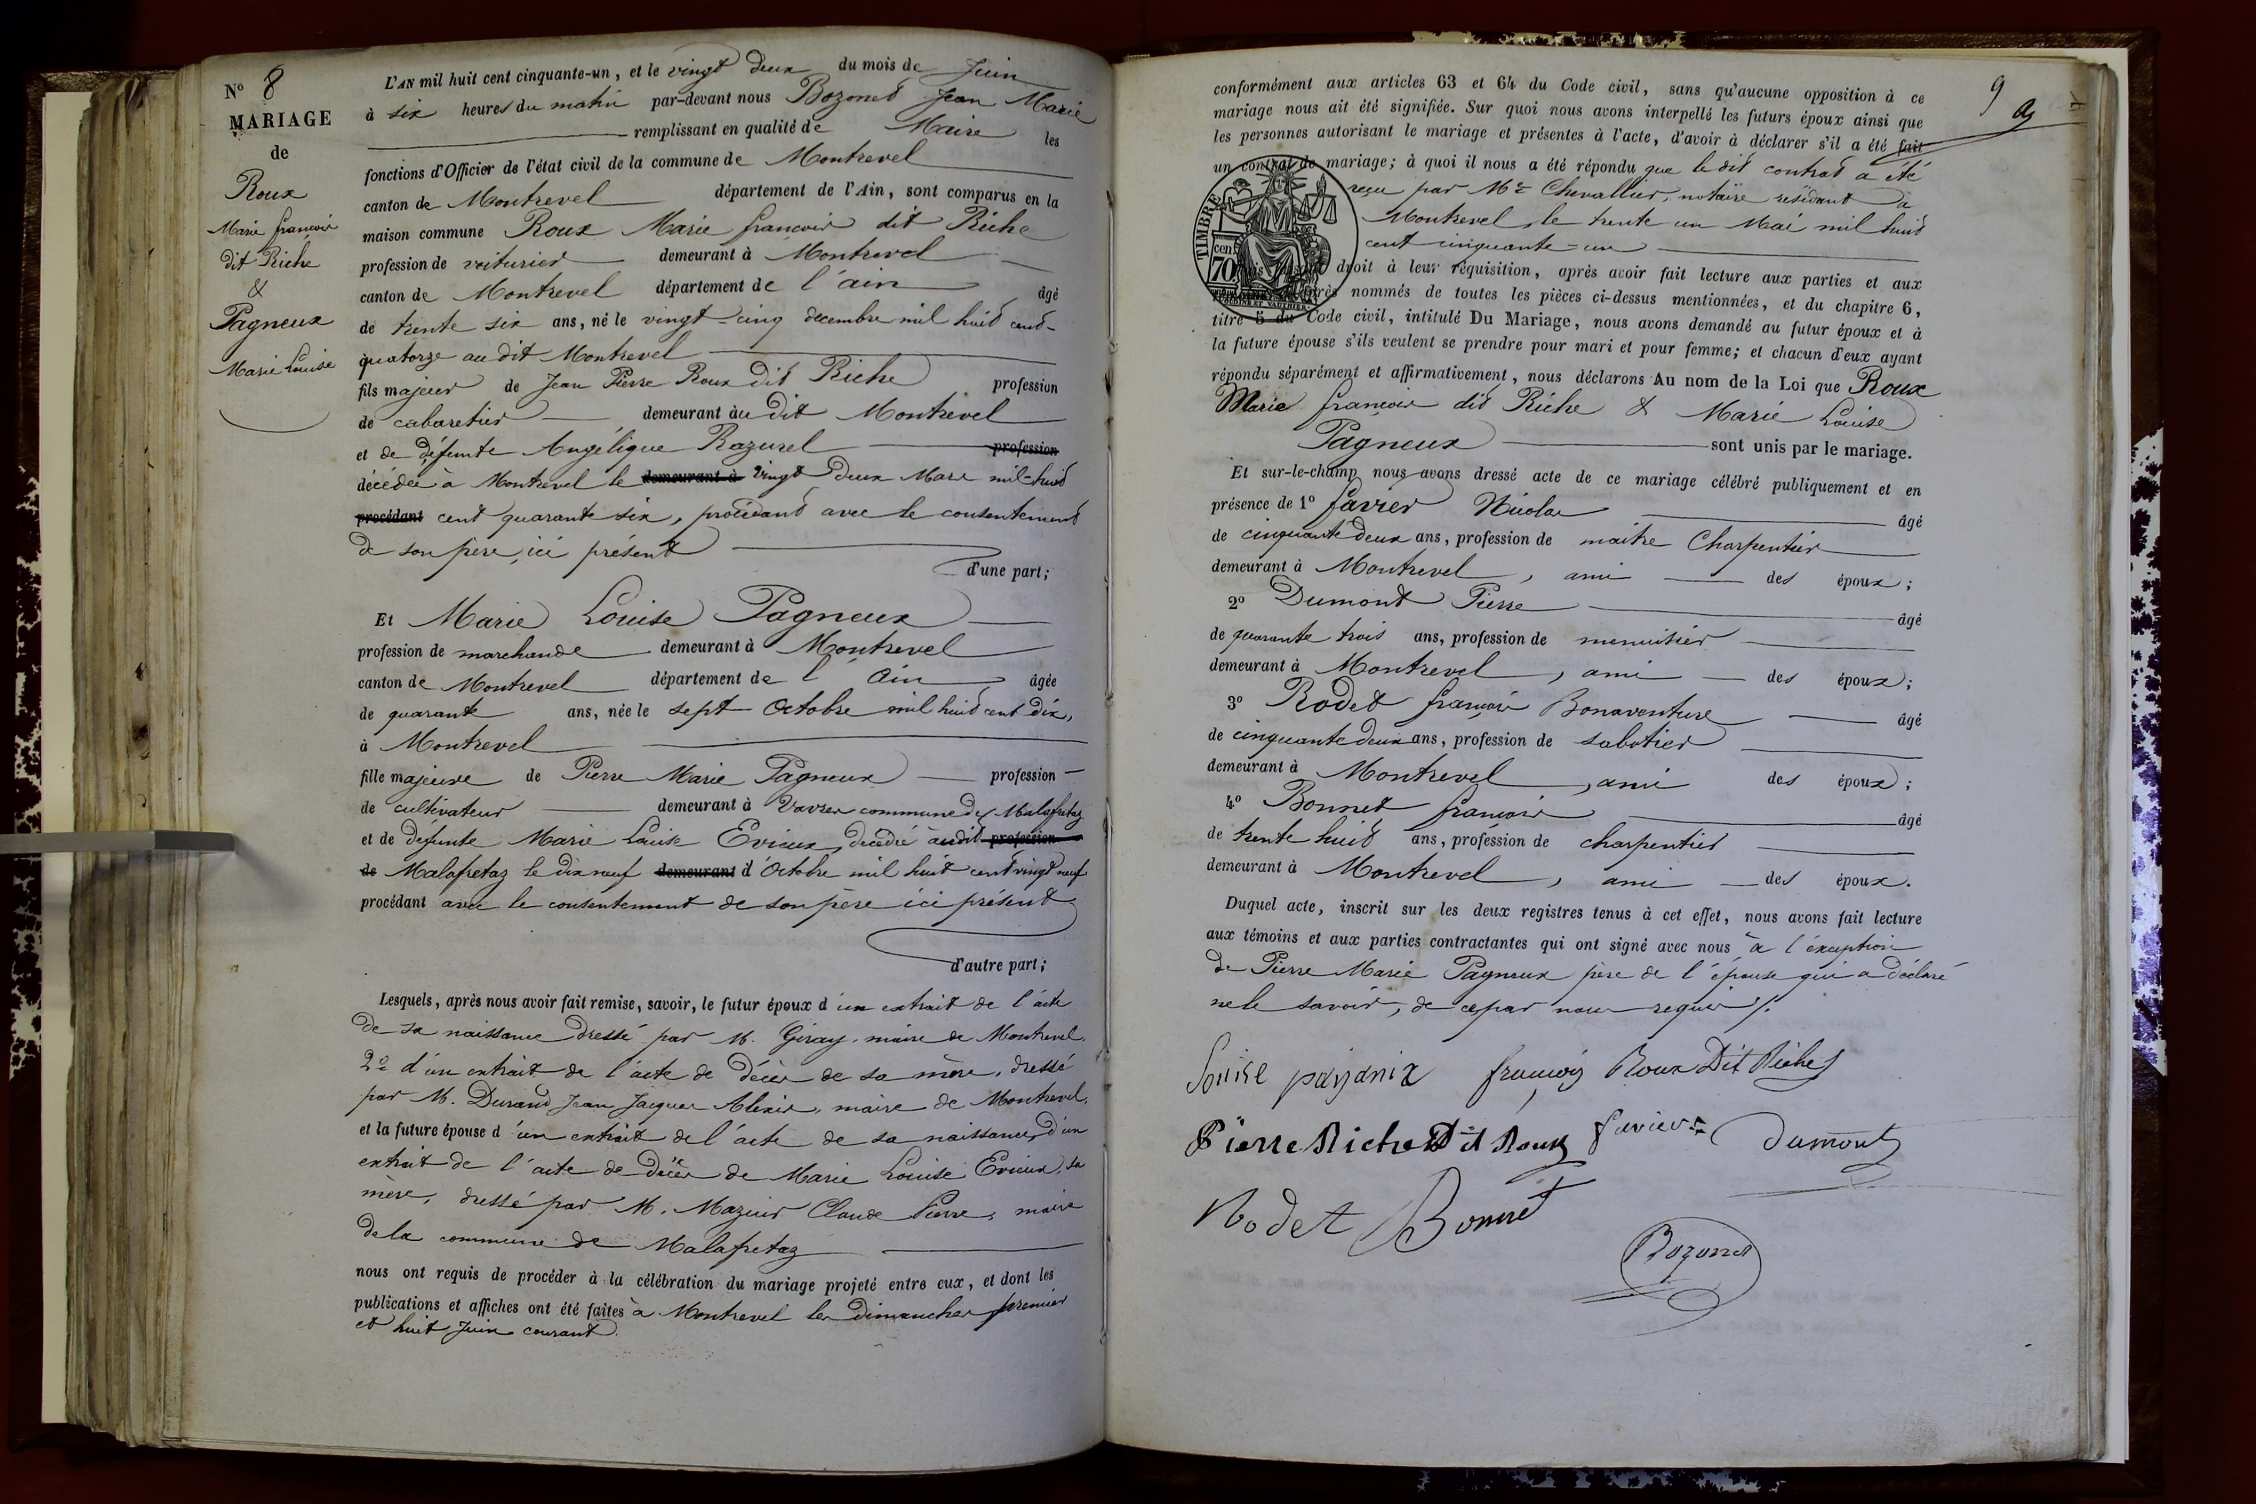 N° 8
MARIAGE
de
Roux
Marie françois
dit Riche
&
Pagneux
Marie Louise
L'AN mil huit cent cinquante-un, et le vingt deux du mois de Juin
à six heures du matin par-devant nous Bozonet Jean Marie
remplissant en qualité de Maire les
fonctions d'Officier de l'état civil de la commune de Montrevel
canton de Montrevel département de l'Ain, sont comparus en la
maison commune Roux Marie françois dit Riche
profession de voiturier demeurant à Montrevel
canton de Montrevel département de l'ain âgé
de trente six ans, né le vingt-cinq decembre mil huit cent-
quatorze au dit Montrevel
fils majeur de Jean Pierre Roux dit Riche profession
de cabaretier demeurant àu dit Montrevel
et de défunte Angélique Razurel profession
décédée à Montrevel le demeurant à vingt deux Mars mil-huit
procédant cent quarante six, procédant avec le consentement
de son père, ici présent
d'une part;
Et Marie Louise Pagneux
profession de marchande demeurant à Montrevel
canton de Montrevel département de l'Ain âgée
de quarante ans, née le sept Octobre mil huit cent dix,
à Montrevel
fille majeure de Pierre Marie Pagneux profession
de cultivateur demeurant à commune de Malafretaz
et de défunte Marie Louise Evieux, décédée audit profession
de Malafretaz le dix neuf demeurant d'Octobre mil huit cent vingt neuf
procédant avec le consentement de son père ici présent
d'autre part;
Lesquels, après nous avoir fait remise, savoir, le futur époux d'un extrait de l'acte
de sa naissance dressé par M. Giray, maire de Montrevel.
2° d'un extrait de l'acte de décès de sa mère, dressé
par M. Durand Jean Jacques Alexis, maire de Montrevel,
et la future épouse d'un extrait de l'acte de sa naissance, d'un
extrait de l'acte de décès de Marie Louise Evieux, sa
mère, dressé par M. Mazuir Claude Pierre, maire
de la commune de Malafretaz
nous ont requis de procéder à la célébration du mariage projeté entre eux, et dont les
publications et affiches ont été faites à Montrevel les dimanches premier
et huit Juin courant.
9
conformément aux articles 63 et 64 du Code civil, sans qu'aucune opposition à ce
mariage nous ait été signifiée. Sur quoi nous avons interpellé les futurs époux ainsi que
les personnes autorisant le mariage et présentes à l'acte, d'avoir à déclarer s'il a été fait
un contrat de mariage; à quoi il nous a été répondu que le dit contrat a été
reçu par Me Chevallier, notaire résidant à
Montrevel, le trente un Mai mil huit
cent cinquante-un
TIMBRE
70 cen
droit à leur réquisition, après avoir fait lecture aux parties et aux
après nommés de toutes les pièces ci-dessus mentionnées, et du chapitre 6,
titre 5 du Code civil, intitulé Du Mariage, nous avons demandé au futur époux et à
la future épouse s'ils veulent se prendre pour mari et pour femme; et chacun d'eux ayant
répondu séparément et affirmativement, nous déclarons Au nom de la Loi que Roux
Marie françois dit Riche & Marie Louise
Pagneux sont unis par le mariage.
Et sur-le-champ nous avons dressé acte de ce mariage célébré publiquement et en
présence de 1° favier Nicolas âgé
de cinquante deux ans, profession de maitre Charpentier
demeurant à Montrevel, ami des époux;
2° Dumont Pierre âgé
de quarante trois ans, profession de menuisier
demeurant à Montrevel, ami des époux;
3° Rodet françois Bonaventure âgé
de cinquante deux ans, profession de sabotier
demeurant à Montrevel, ami des époux;
4° Bonnet françois âgé
de trente huit ans, profession de charpentier
demeurant à Montrevel, ami des époux.
Duquel acte, inscrit sur les deux registres tenus à cet effet, nous avons fait lecture
aux témoins et aux parties contractantes qui ont signé avec nous à l'éxception
de Pierre Marie Pagneux père de l'épouse qui a déclaré
ne le savoir, de ce par nous requis ./.
Louise paganix françois Roux Dit Riche
Pierre Riche Dit Roux favier Dumont
Rodet Bonnet
Bozonet